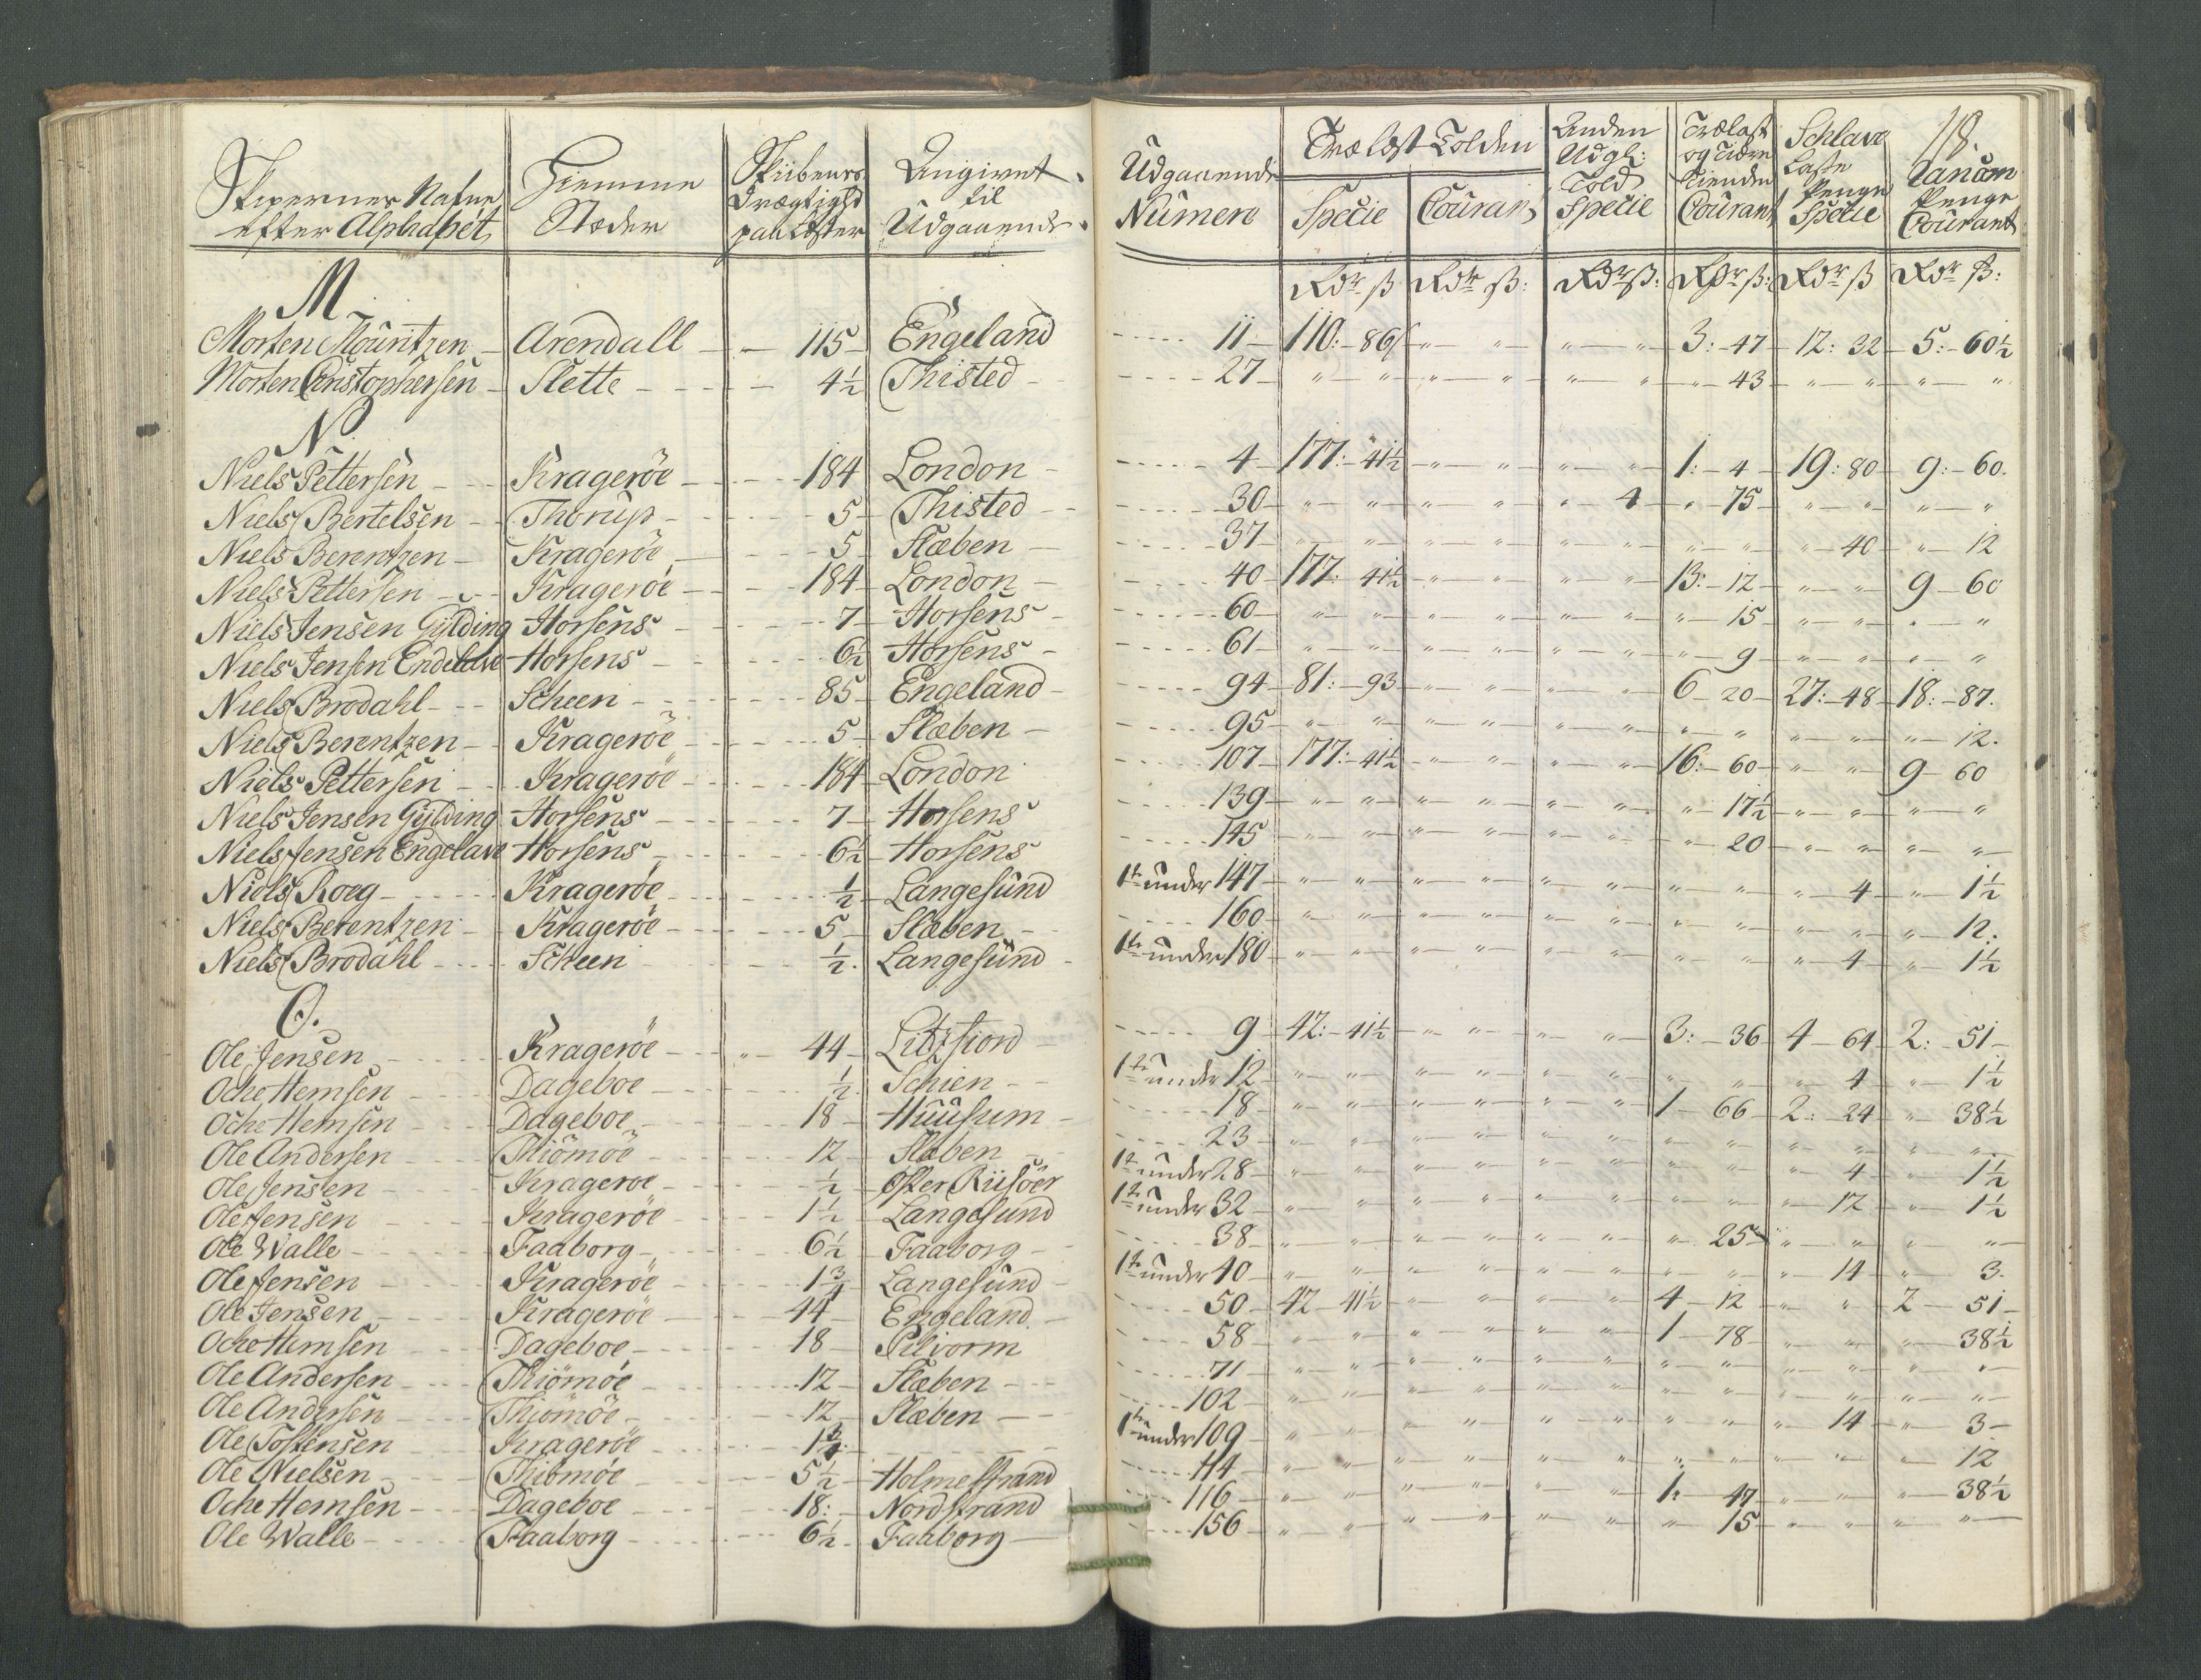 18.
Skipernes Nafne efter Alphabet | Hiemme Stæder | Skibenes Drægtighd paa Læster | Angivet til Udgaaende | Udgaaende Numere | Trælast-Tolden Specie | Courant | Anden Udgl: Told Specie | Trælast og Tiære Tienden Courant | Schlave Caste Penge Specie | Lanom Penge Courant
Rdr ß | Rdr ß: | Rdr ß: | Rdr ß: | Rdr ß | Rdr ß:
M.
Morten Mouritzen | Arendall | 115 | Engeland | 11 | 110:-86 | " " | " " | 3:-47 | 12: 32 | 5:-60½
Morten Christophersen | Slette | 4½ | Thisted | 27 | " " | " " | " " | "-43 | " " | " "
N.
Niels Pettersen | Krageröe | 184 | London | 4 | 177:-41½ | " " | " " | 1:-4 | 19:80 | 9:-60.
Niels Bertelsen | Thorup | 5 | Thisted | 30 | " " | " " | " 4 | "-75 | " " | " "
Niels Berentzen | Krageröe | 5 | Slæben | 37 | " " | " " | " " | " " | "-40 | "-12
Niels Pettersen | Krageröe | 184 | London | 40 | 177:-41½ | " " | " " | 13:-12 | " " | 9-60
Niels Jensen Gylding | Horsens | 7 | Horsens | 60 | " " | " " | " " | "-15 | " " | " "
Niels Jensen Endelave | Horsens | 6½ | Horsens | 61 | " " | " " | " " | "-9 | " " | " "
Niels Brodahl | Scheen | 85 | Engeland | 94 | 81:-93 | " " | " " | 6-20 | 27:-48 | 18:-87.
Niels Berentzen | Krageröe | 5 | Slæben | 95 | " " | " " | " " | " " | " " | "-12.
Niels Pettersen | Krageröe | 184 | London | 107 | 177:-41½ | " " | " " | 16:-60 | " " | 9-60
Niels Jensen Gylding | Horsens | 7 | Horsens | 139 | " " | " " | " " | "-17½ | " " | " "
Niels Jensen Engelave | Horsens | 6½ | Horsens | 145 | " " | " " | " " | "-20 | " " | " "
Niels Roeg | Krageröe | ½ | Langesund | 1te under 147 | " " | " " | " " | " " | "-4 | "-1½
Niels Berentzen | Krageröe | 5 | Slæben | 160 | " " | " " | " " | " " | " " | "-12.
Niels Brodahl | Scheen | ½. | Langesund | 1te under 180 | " " | " " | " " | " " | "-4 | "-1½
O.
Ole Jensen | Krageröe | 44 | Litzfiord | 9 | 42:-41½ | " " | " " | 3:-36 | 4-64 | 2:-51
Oche Hemsen | Dageboe | ½ | Schien | 1te under 12 | " " | " " | " " | " " | "-4 | "-1½
Oche Hemsen | Dageboe | 18 | Huusum | 18 | " " | " " | " " | 1-66 | 2:-24 | "-38½
Ole Andersen | Thiömöe | 12 | Slæben | 23 | " " | " " | " " | " " | " " | " "
Ole Jensen | Krageröe | ½ | Öster Riisöer | 1te under 28 | " " | " " | " " | " " | "-4 | "-1½
Ole Jensen | Krageröe | 1½ | Langesund | 1te under 32 | " " | " " | " " | " " | "-12 | "-1½
Ole Walle | Faaborg | 6½ | Faaborg | 38 | " " | " " | " " | "-25 | " " | " "
Ole Jensen | Krageröe | 1¾ | Langesund | 1te under 40 | " " | " " | " " | " " | "-14 | "-3.
Ole Jensen | Krageröe | 44 | Engeland | 50 | 42-41½ | " " | " " | 4-12 | " " | 2-51
Oche Hemsen | Dageboe | 18 | Pilvorm | 58 | " " | " " | " " | 1-78 | " " | "-38½
Ole Andersen | Thiömöe | 12 | Slæben | 71 | " " | " " | " " | " " | " " | " "
Ole Andersen | Thiömöe | 12 | Slæben | 102 | " " | " " | " " | " " | " " | " "
Ole Tostensen | Krageröe | 1¾ | | 1te under 109 | " " | " " | " " | " " | "-14 | "-3
Ole Nielsen | Thiömöe | 5½ | Holmestrand | 114 | " " | " " | " " | " " | " " | "-12
Oche Hemsen | Dageboe | 18: | Nordstrand | 116 | " " | " " | " " | 1:-47 | " " | "-38½
Ole Walle | Faaborg | 6½ | Faaborg | 156 | " " | " " | " " | "-15 | " " | " "